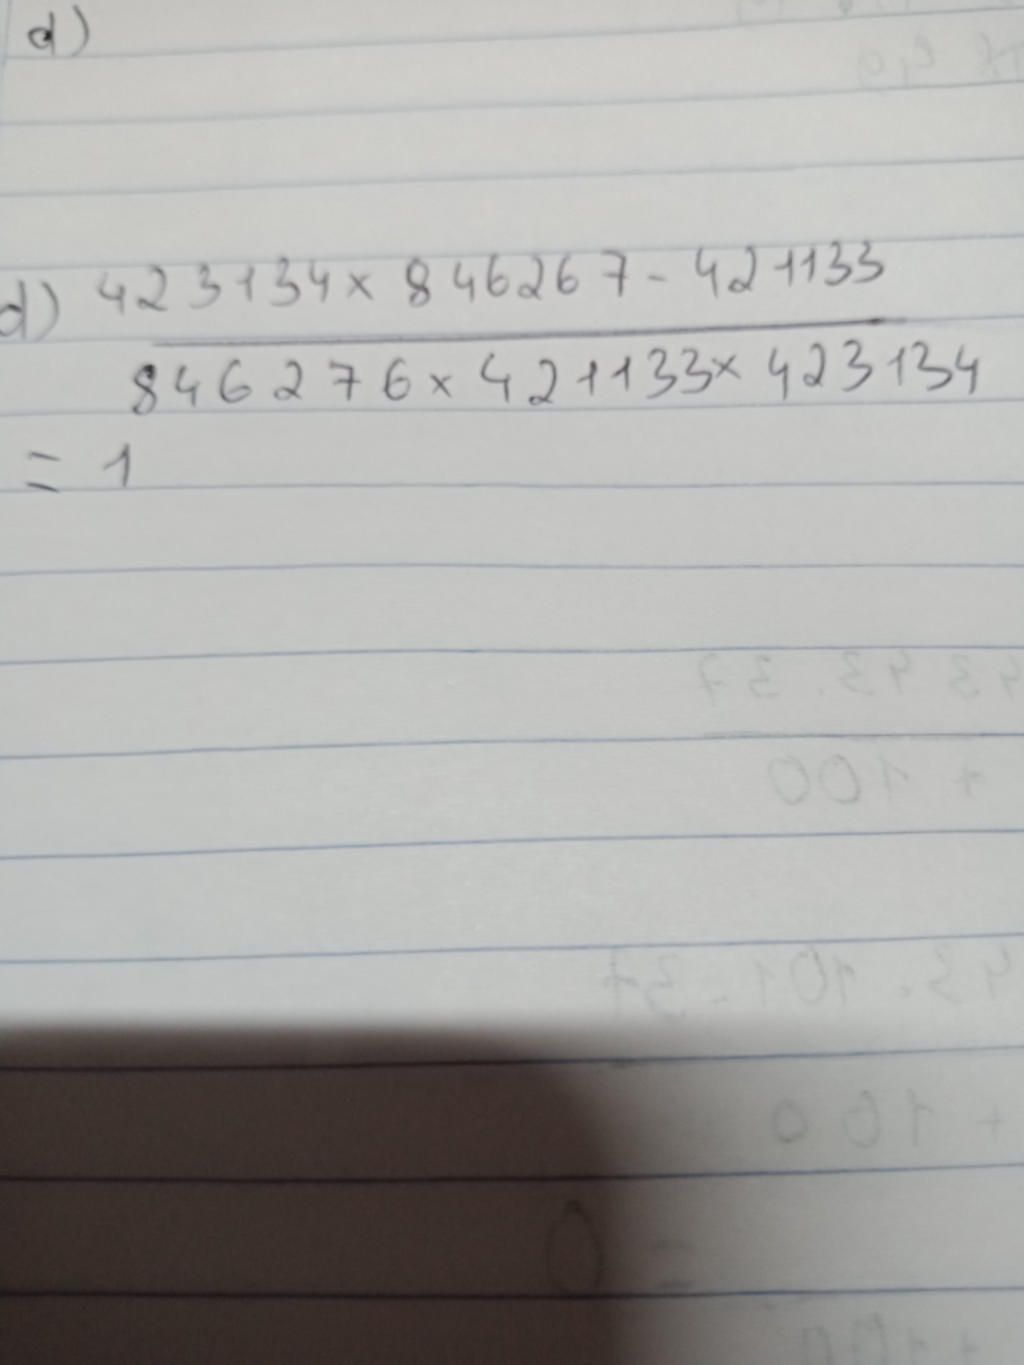 d)
d) 423134 × 846267 - 421133
846276 × 421133 × 423134
= 1